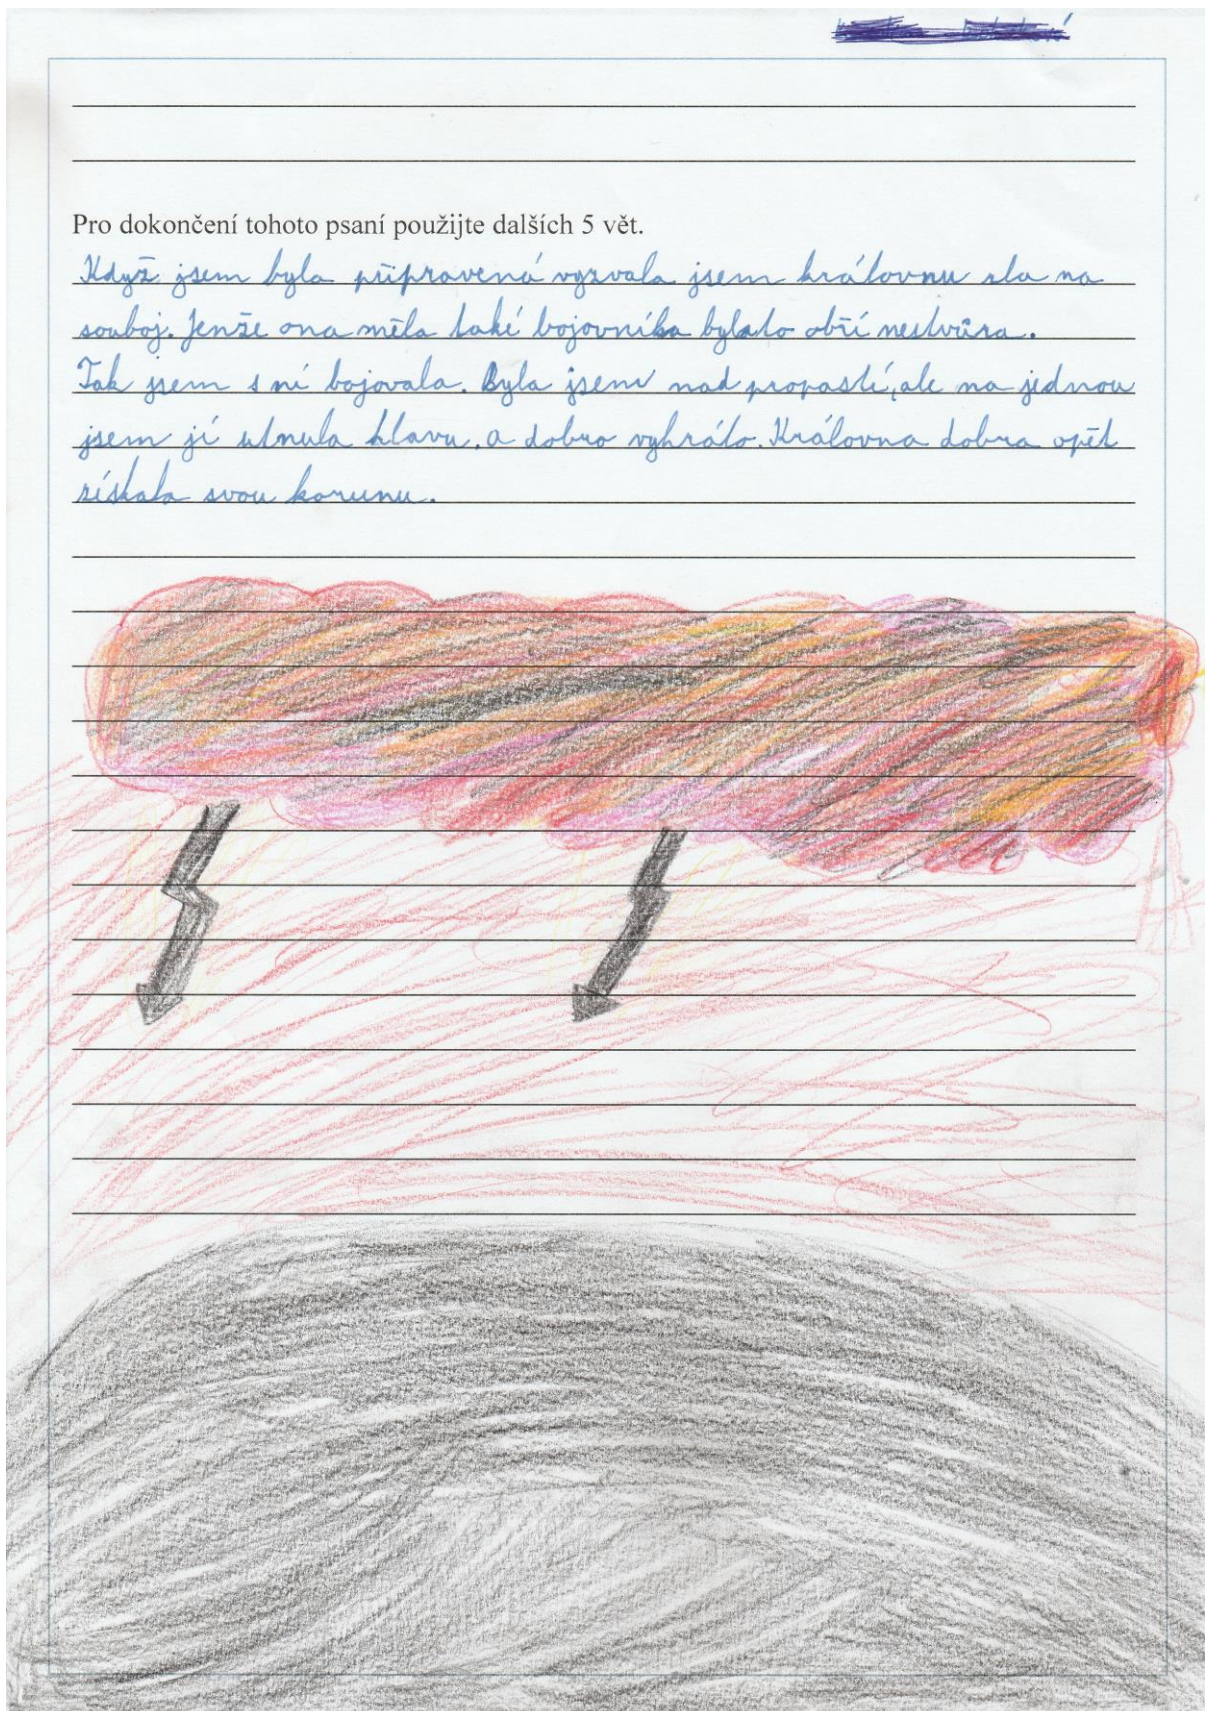 Pro dokončení tohoto psaní použijte dalších 5 vět.
Když jsem byla připravená vyzvala jsem královnu zla na
souboj. Jenže ona měla také bojovníka bylato obří nestvůra.
Tak jsem s ní bojovala. Byla jsem nad propastí, ale na jednou
jsem jí utnula hlavu. a dobro vyhrálo. Královna dobra opět
získala svou korunu.